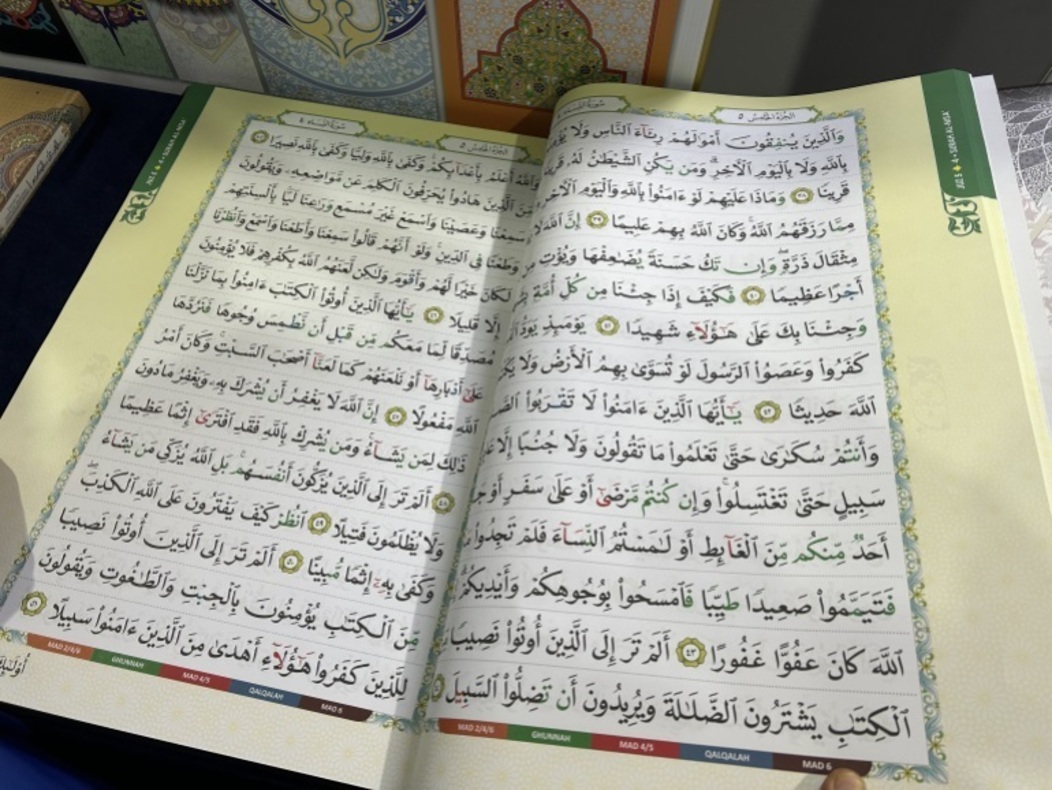 سورة النساء ٤
الجزء الخامس ٥
JUZ 5 4 • SURAH AL-NISA'
وَٱلَّذِينَ يُنفِقُونَ أَمْوَٰلَهُمْ رِئَآءَ ٱلنَّاسِ وَلَا
بِٱللَّهِ وَلَا بِٱلْيَوْمِ ٱلْأَخِرِ ۗ وَمَن يَكُنِ ٱلشَّيْطَٰنُ لَهُۥ
قَرِينًا ٣٨ وَمَاذَا عَلَيْهِمْ لَوْ ءَامَنُوا۟ بِٱللَّهِ وَٱلْيَوْمِ ٱلْأَخِرِ
مِمَّا رَزَقَهُمُ ٱللَّهُ ۚ وَكَانَ ٱللَّهُ بِهِمْ عَلِيمًا ٣٩ إِنَّ ٱللَّهَ لَا
مِثْقَالَ ذَرَّةٍ ۖ وَإِن تَكُ حَسَنَةً يُضَٰعِفْهَا وَيُؤْتِ
أَجْرًا عَظِيمًا ٤٠ فَكَيْفَ إِذَا جِئْنَا مِن كُلِّ أُمَّةٍۭ
وَجِئْنَا بِكَ عَلَىٰ هَٰٓؤُلَآءِ شَهِيدًا ٤١ يَوْمَئِذٍ يَوَدُّ
كَفَرُوا۟ وَعَصَوُا۟ ٱلرَّسُولَ لَوْ تُسَوَّىٰ بِهِمُ ٱلْأَرْضُ وَلَا
ٱللَّهَ حَدِيثًا ٤٢ يَٰٓأَيُّهَا ٱلَّذِينَ ءَامَنُوا۟ لَا تَقْرَبُوا۟
وَأَنتُمْ سُكَٰرَىٰ حَتَّىٰ تَعْلَمُوا۟ مَا تَقُولُونَ وَلَا جُنُبًا إِلَّا
سَبِيلٍ حَتَّىٰ تَغْتَسِلُوا۟ ۚ وَإِن كُنتُم مَّرْضَىٰٓ أَوْ عَلَىٰ سَفَرٍ أَوْ
أَحَدٌ مِّنكُم مِّنَ ٱلْغَآئِطِ أَوْ لَٰمَسْتُمُ ٱلنِّسَآءَ فَلَمْ تَجِدُوا۟
فَتَيَمَّمُوا۟ صَعِيدًا طَيِّبًا فَٱمْسَحُوا۟ بِوُجُوهِكُمْ وَأَيْدِيكُمْ
ٱللَّهَ كَانَ عَفُوًّا غَفُورًا ٤٣ أَلَمْ تَرَ إِلَى ٱلَّذِينَ أُوتُوا۟ نَصِيبًا
ٱلْكِتَٰبِ يَشْتَرُونَ ٱلضَّلَٰلَةَ وَيُرِيدُونَ أَن تَضِلُّوا۟ ٱلسَّبِيلَ
MAD 2/4/6 GHUNNAH MAD 4/5 QALQALAH MAD 6
سورة النساء ٤
الجزء الخامس ٥
JUZ 5 4 • SURAH AL-NISA'
وَٱللَّهُ أَعْلَمُ بِأَعْدَآئِكُمْ ۚ وَكَفَىٰ بِٱللَّهِ وَلِيًّا وَكَفَىٰ بِٱللَّهِ نَصِيرًا
مِّنَ ٱلَّذِينَ هَادُوا۟ يُحَرِّفُونَ ٱلْكَلِمَ عَن مَّوَاضِعِهِۦ وَيَقُولُونَ
سَمِعْنَا وَعَصَيْنَا وَٱسْمَعْ غَيْرَ مُسْمَعٍ وَرَٰعِنَا لَيًّۢا بِأَلْسِنَتِهِمْ
وَطَعْنًا فِى ٱلدِّينِ ۚ وَلَوْ أَنَّهُمْ قَالُوا۟ سَمِعْنَا وَأَطَعْنَا وَٱسْمَعْ وَٱنظُرْنَا
لَكَانَ خَيْرًا لَّهُمْ وَأَقْوَمَ وَلَٰكِن لَّعَنَهُمُ ٱللَّهُ بِكُفْرِهِمْ فَلَا يُؤْمِنُونَ
إِلَّا قَلِيلًا ٤٦ يَٰٓأَيُّهَا ٱلَّذِينَ أُوتُوا۟ ٱلْكِتَٰبَ ءَامِنُوا۟ بِمَا نَزَّلْنَا
مُصَدِّقًا لِّمَا مَعَكُم مِّن قَبْلِ أَن نَّطْمِسَ وُجُوهًا فَنَرُدَّهَا
عَلَىٰٓ أَدْبَارِهَآ أَوْ نَلْعَنَهُمْ كَمَا لَعَنَّآ أَصْحَٰبَ ٱلسَّبْتِ ۚ وَكَانَ أَمْرُ
ٱللَّهِ مَفْعُولًا ٤٧ إِنَّ ٱللَّهَ لَا يَغْفِرُ أَن يُشْرَكَ بِهِۦ وَيَغْفِرُ مَا دُونَ
ذَٰلِكَ لِمَن يَشَآءُ ۚ وَمَن يُشْرِكْ بِٱللَّهِ فَقَدِ ٱفْتَرَىٰٓ إِثْمًا عَظِيمًا
٤٨ أَلَمْ تَرَ إِلَى ٱلَّذِينَ يُزَكُّونَ أَنفُسَهُم ۚ بَلِ ٱللَّهُ يُزَكِّى مَن يَشَآءُ
وَلَا يُظْلَمُونَ فَتِيلًا ٤٩ ٱنظُرْ كَيْفَ يَفْتَرُونَ عَلَى ٱللَّهِ ٱلْكَذِبَ ۖ
وَكَفَىٰ بِهِۦٓ إِثْمًا مُّبِينًا ٥٠ أَلَمْ تَرَ إِلَى ٱلَّذِينَ أُوتُوا۟ نَصِيبًا
مِّنَ ٱلْكِتَٰبِ يُؤْمِنُونَ بِٱلْجِبْتِ وَٱلطَّٰغُوتِ وَيَقُولُونَ
لِلَّذِينَ كَفَرُوا۟ هَٰٓؤُلَآءِ أَهْدَىٰ مِنَ ٱلَّذِينَ ءَامَنُوا۟ سَبِيلًا ٥١
MAD 2/4/6 GHUNNAH MAD 4/5 QALQALAH MAD 6